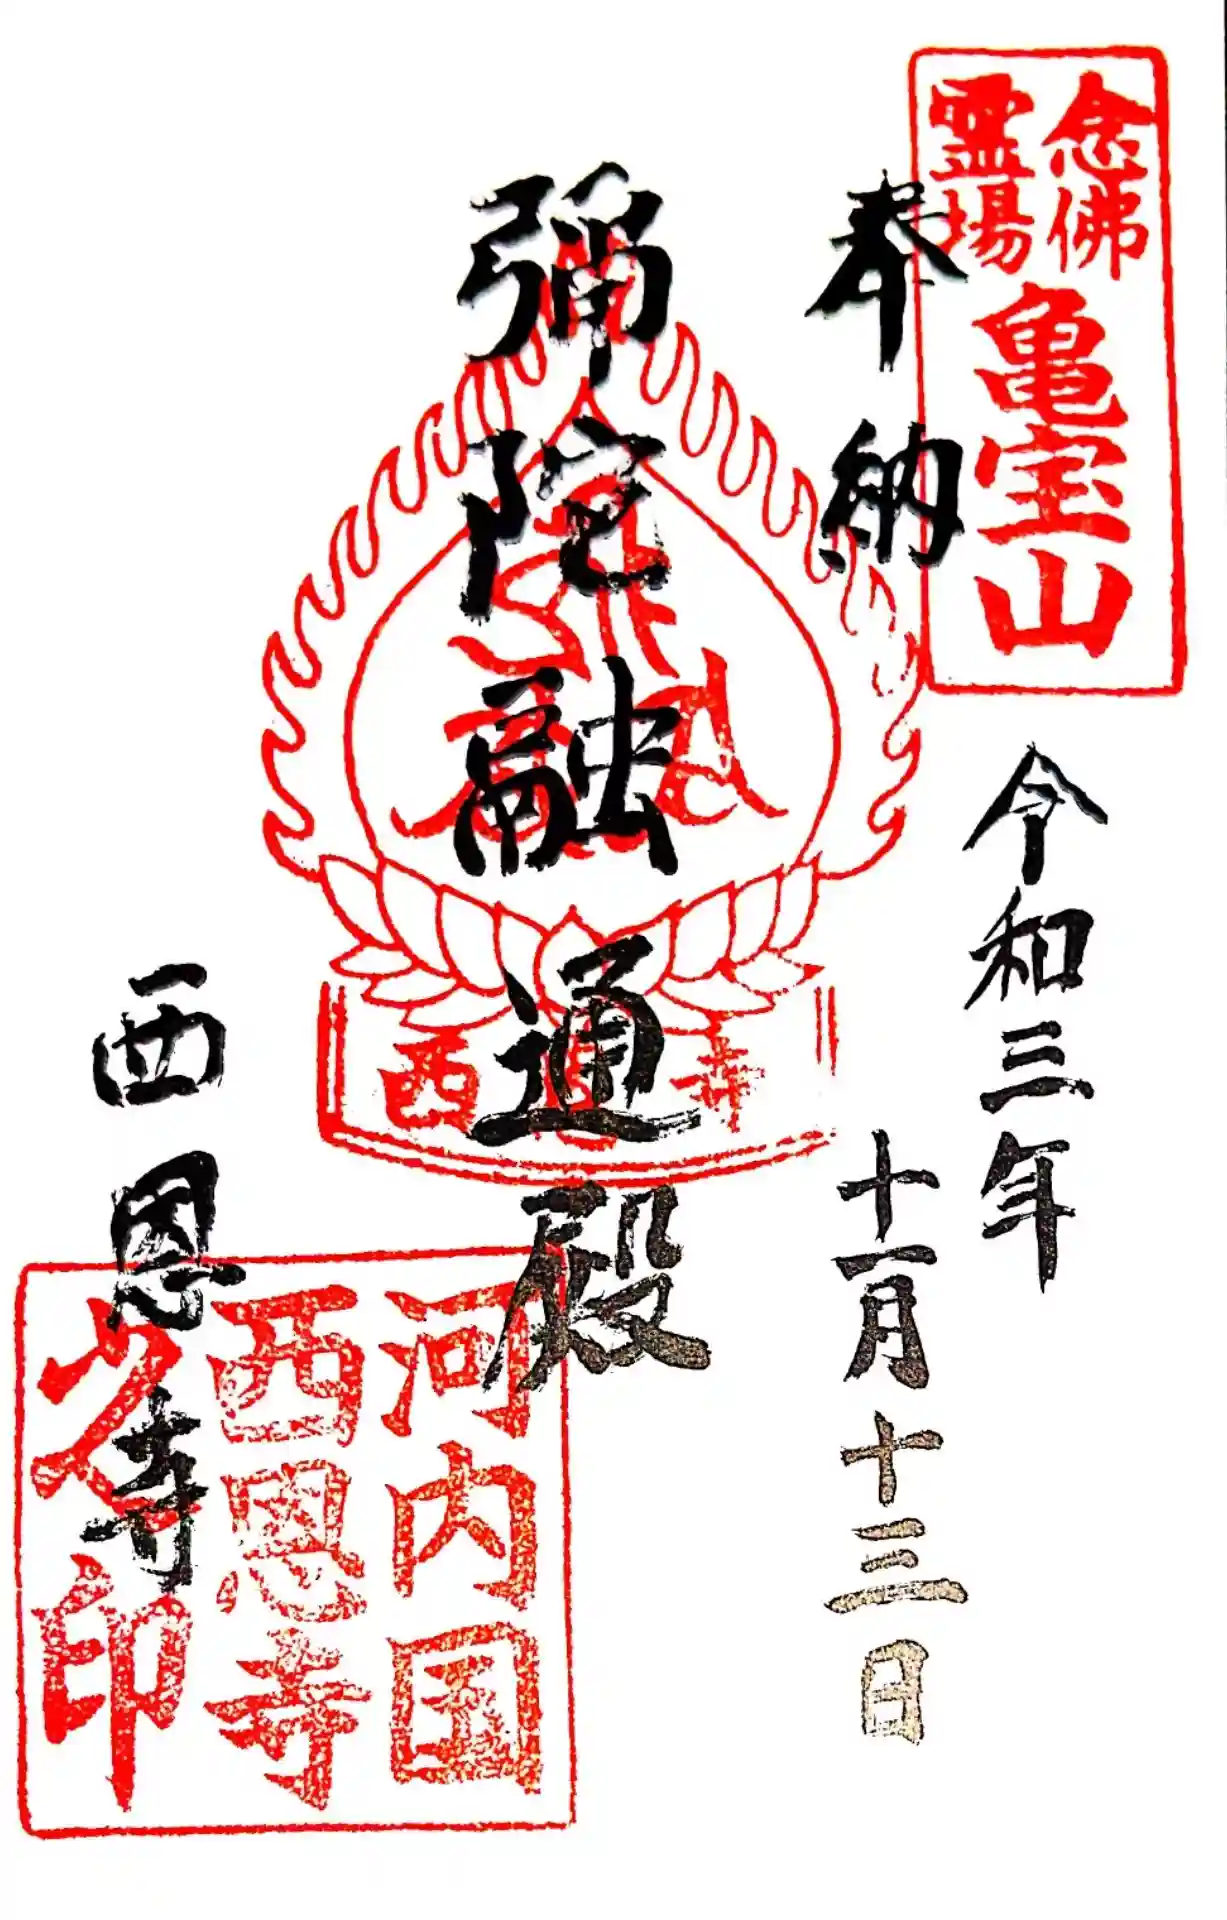 念佛
霊場
亀宝山
奉納
令和三年
十一月十三日
彌陀融通殿
西恩寺
西恩寺
河内国
西恩寺
印